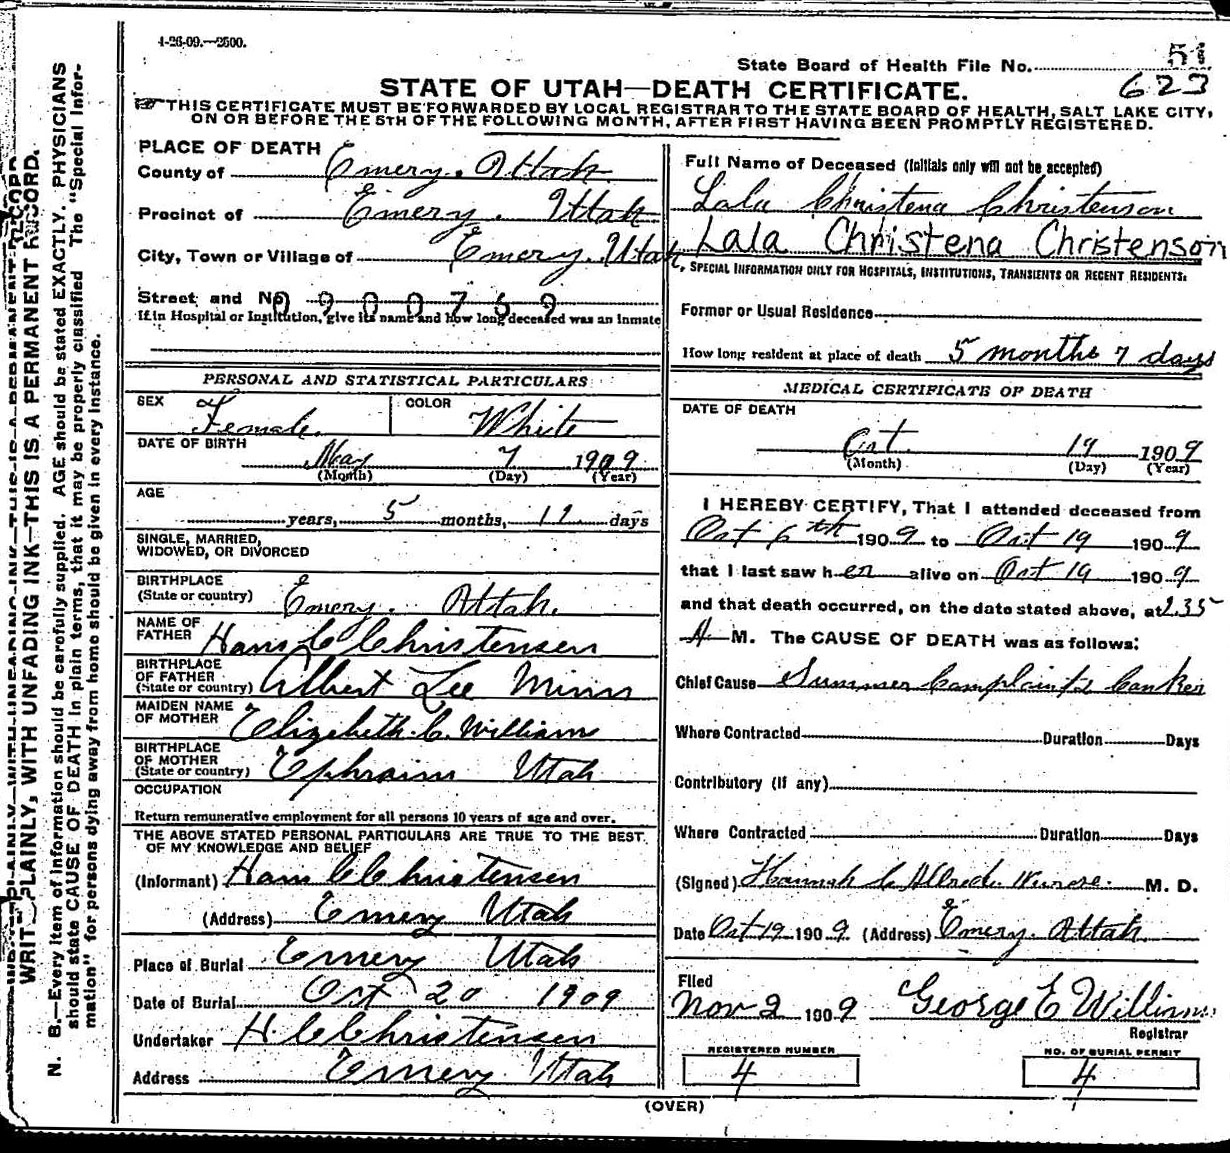 4-26-09.—2500.
51
State Board of Health File No.
623
STATE OF UTAH—DEATH CERTIFICATE.
THIS CERTIFICATE MUST BE FORWARDED BY LOCAL REGISTRAR TO THE STATE BOARD OF HEALTH, SALT LAKE CITY,
ON OR BEFORE THE 5TH OF THE FOLLOWING MONTH, AFTER FIRST HAVING BEEN PROMPTLY REGISTERED.
WRITE PLAINLY, WITH UNFADING INK—THIS IS A PERMANENT RECORD.
N. B.—Every item of information should be carefully supplied. AGE should be stated EXACTLY. PHYSICIANS
should state CAUSE OF DEATH in plain terms, that it may be properly classified. The "Special Infor-
mation" for persons dying away from home should be given in every instance.
PLACE OF DEATH
County of Emery. Uttah
Precinct of Emery. Uttah
City, Town or Village of Emery. Utah
Street and No. 0900769
If in Hospital or Institution, give its name and how long deceased was an inmate
PERSONAL AND STATISTICAL PARTICULARS
SEX Female.
COLOR White
DATE OF BIRTH
May 7 1909
(Month) (Day) (Year)
AGE
years, 5 months, 11 days
SINGLE, MARRIED,
WIDOWED, OR DIVORCED
BIRTHPLACE
(State or country) Emery. Uttah.
NAME OF
FATHER Hans C Christensen
BIRTHPLACE
OF FATHER
(State or country) Albert Lee Minn
MAIDEN NAME
OF MOTHER Elizabeth. C. Williams
BIRTHPLACE
OF MOTHER
(State or country) Ephraim Utah
OCCUPATION
Return remunerative employment for all persons 10 years of age and over.
THE ABOVE STATED PERSONAL PARTICULARS ARE TRUE TO THE BEST
OF MY KNOWLEDGE AND BELIEF
(Informant) Hans C Christensen
(Address) Emery Utah
Place of Burial Emery Utah
Date of Burial Oct 20 1909
Undertaker H C Christensen
Address Emery Utah
Full Name of Deceased (Initials only will not be accepted)
Lala Christena Christenson
Lala Christena Christenson
SPECIAL INFORMATION ONLY FOR HOSPITALS, INSTITUTIONS, TRANSIENTS OR RECENT RESIDENTS.
Former or Usual Residence
How long resident at place of death 5 months 7 days
MEDICAL CERTIFICATE OF DEATH
DATE OF DEATH
Oct. 19 1909
(Month) (Day) (Year)
I HEREBY CERTIFY, That I attended deceased from
Oct 6th 1909 to Oct 19 1909
that I last saw her alive on Oct 19 1909
and that death occurred, on the date stated above, at 2.35
A M. The CAUSE OF DEATH was as follows:
Chief Cause Summer Complaint & Canker
Where Contracted Duration Days
Contributory (if any)
Where Contracted Duration Days
(Signed) Hannah C Allred. Nurse. M. D.
Date Oct 19 1909. (Address) Emery. Uttah.
Filed
Nov 2 1909 George E Williams
Registrar
REGISTERED NUMBER
4
NO. OF BURIAL PERMIT
4
(OVER)